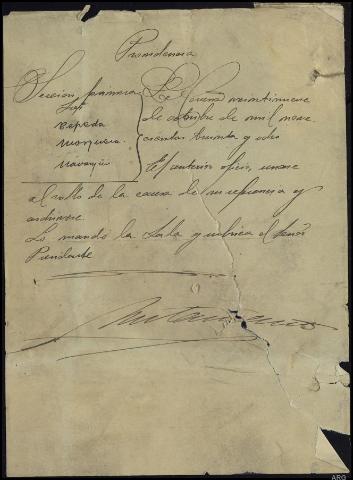 Providencia
Seccion primera
Srs.
Cepeda
Mosquera
Navarro
La Coruña veintinueve
de octubre de mil nove
cientos treinta y ocho
El anterior oficio, unase
al rollo de la causa de su referencia y
archivese
Lo mandó la Sala y rubrica el señor
Presidente
ARG